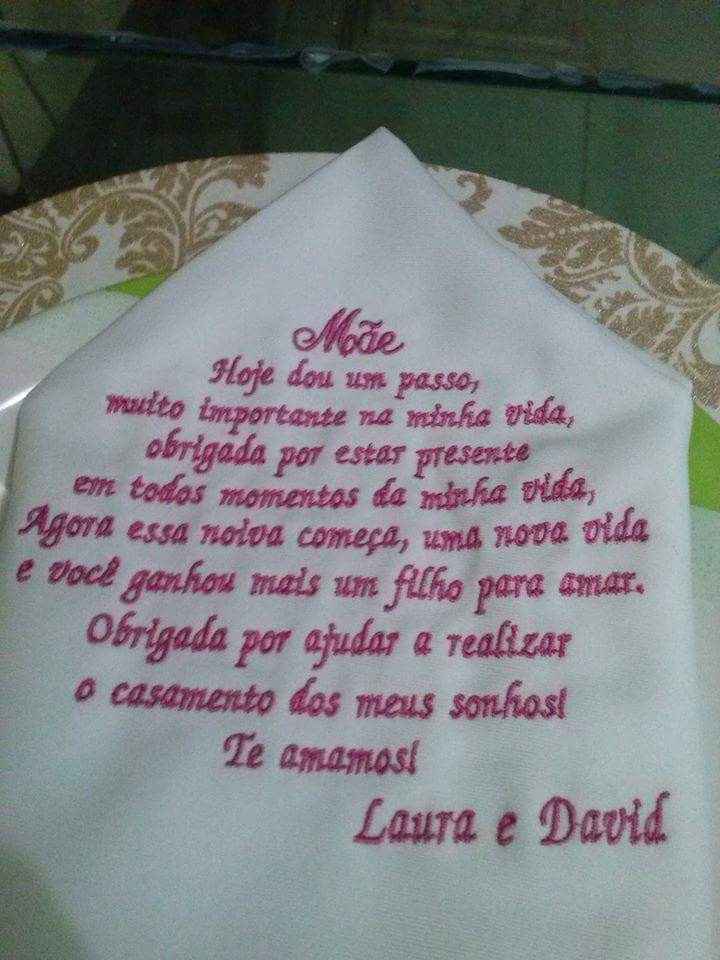 Mãe
Hoje dou um passo,
muito importante na minha vida,
obrigada por estar presente
em todos momentos da minha vida,
Agora essa noiva começa, uma nova vida
e você ganhou mais um filho para amar.
Obrigada por ajudar a realizar
o casamento dos meus sonhos!
Te amamos!
Laura e David